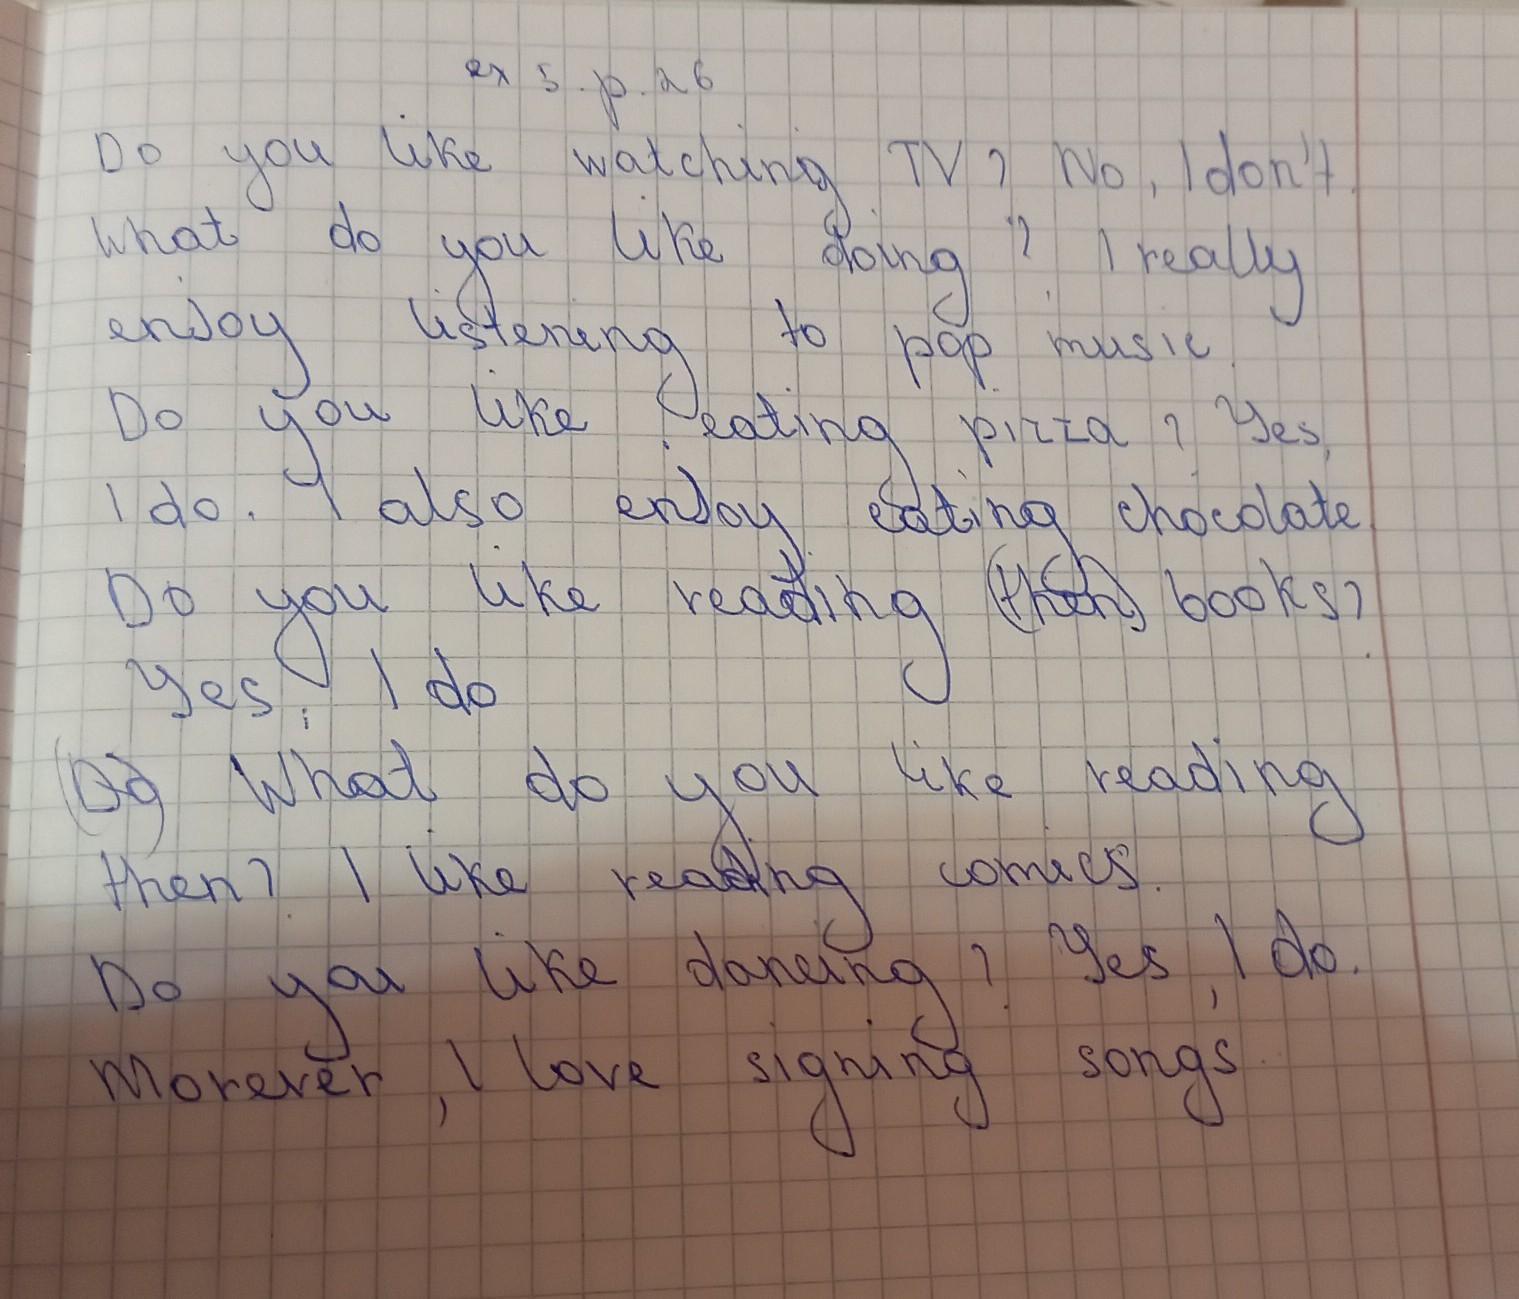 ex 5. p. 26
Do you like watching TV? No, I don't.
What do you like doing? I really
enjoy listening to pop music.
Do you like eating pizza? Yes,
I do. I also enjoy eating chocolate.
Do you like reading (then) books?
Yes, I do
(Do) What do you like reading
then? I like reading comics.
Do you like dancing? Yes, I do.
Morever, I love signing songs.